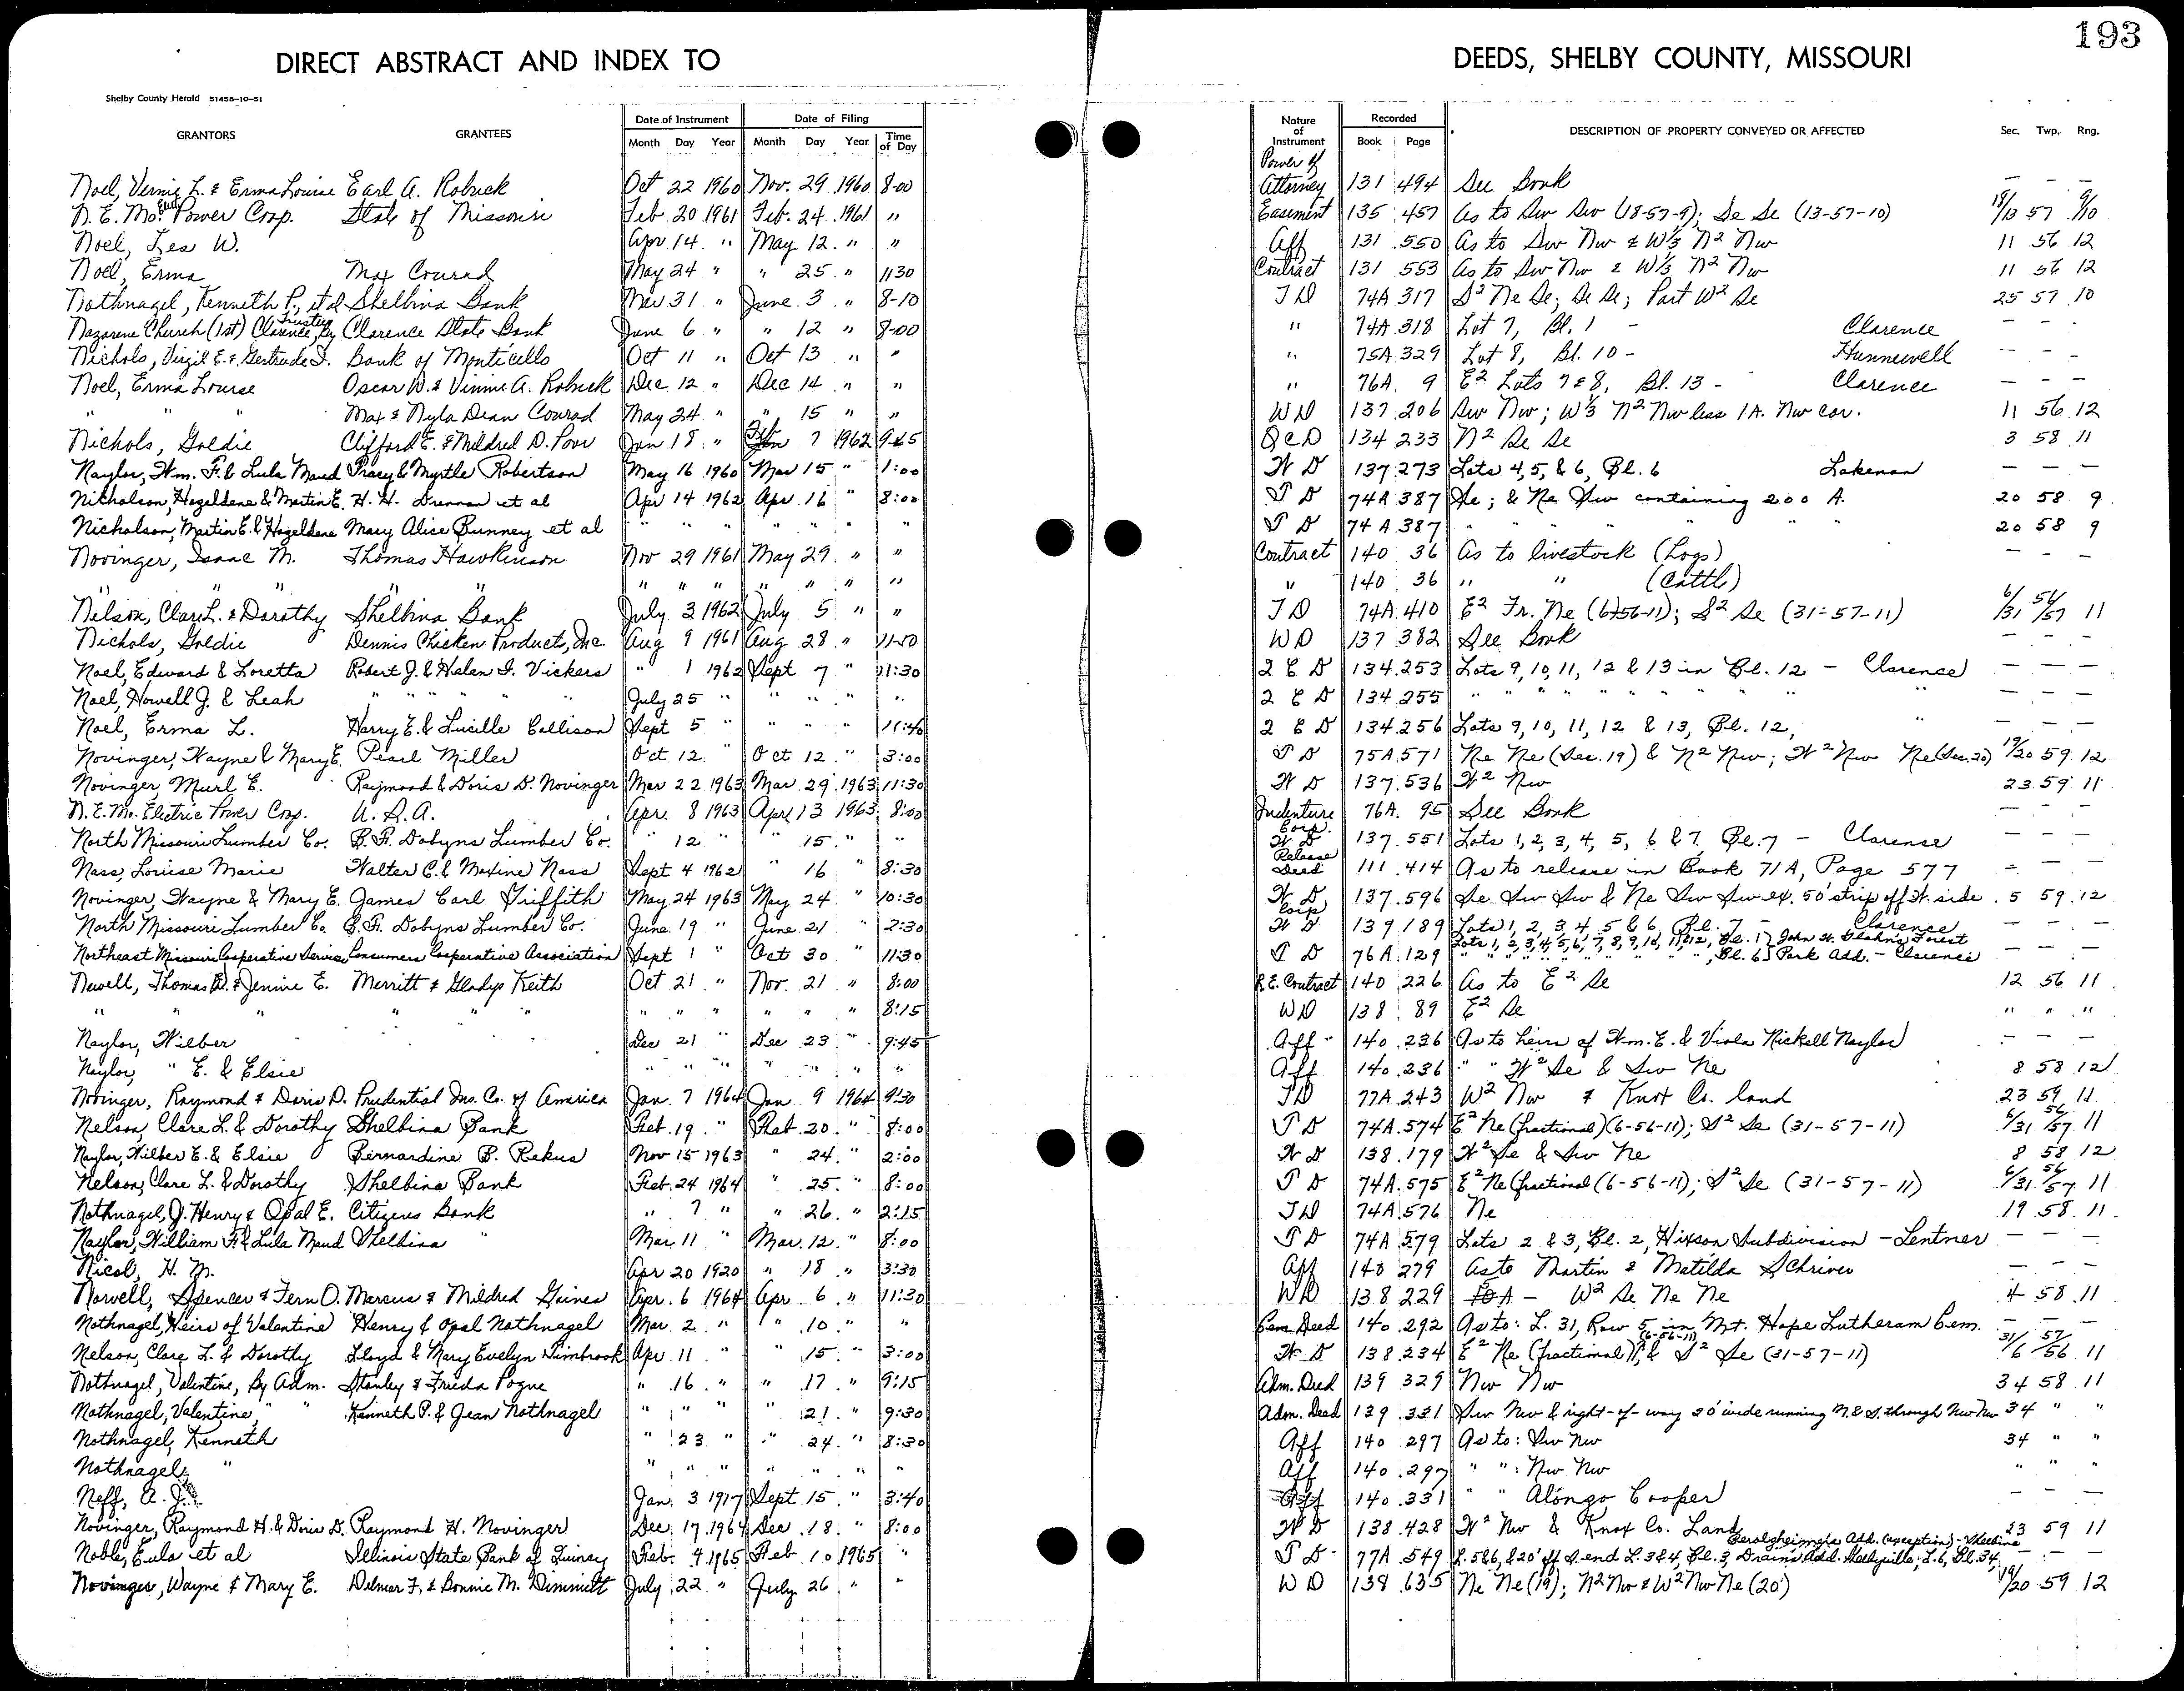 193
DIRECT ABSTRACT AND INDEX TO DEEDS, SHELBY COUNTY, MISSOURI
Shelby County Herald 51458-10-51
GRANTORS GRANTEES Date of Instrument Date of Filing Nature of Instrument Recorded DESCRIPTION OF PROPERTY CONVEYED OR AFFECTED Sec. Twp. Rng.
Month Day Year Month Day Year Time of Day Book Page
Noel, Vernie L. & Erma Louise Earl A. Robuck Oct 22 1960 Nov. 29 1960 8-00 Power of Attorney 131 494 See Book — — —
N. E. Mo. Elec Power Coop. State of Missouri Feb. 20 1961 Feb. 24 1961 " Easement 135 457 As to Sw Sw (18-57-9); Se Se (13-57-10) 18/13 57 9/10
Noel, Les W. Apr 14 " May 12 " " Aff 131 550 As to Sw Nw & W⅓ N2 Nw 11 56 12
Noel, Erma Max Conrad May 24 " " 25 " 11 30 Contract 131 553 As to Sw Nw & W⅓ N2 Nw 11 56 12
Nothnagel, Kenneth P., et al Shelbina Bank Mar 31 " June 3 " 8-10 T D 74A 317 S2 Ne Se; Se Se; Part W2 Se 25 57 10
Nazarene Church (1st) Clarence, By Trustees Clarence State Bank June 6 " " 12 " 8-00 " 74A 318 Lot 7, Bl. 1 - Clarence — — —
Nichols, Virgil E. & Gertrude I. Bank of Monticello Oct 11 " Oct 13 " " " 75A 329 Lot 8, Bl. 10 - Hunnewell — — —
Noel, Erma Louise Oscar W. & Vinnie A. Robuck Dec 12 " Dec 14 " " " 76A 9 E2 Lots 7 & 8, Bl. 13 - Clarence — — —
" " " Max & Nyla Dean Conrad May 24 " " 15 " " W D 137 206 Sw Nw; W⅓ N2 Nw less 1A. Nw cor. 11 56 12
Nichols, Goldie Clifford E. & Mildred D. Poor Jan 18 " Feb 7 1962 9-45 Q C D 134 233 N2 Se Se 3 58 11
Naylor, Wm. F. & Lula Maud Tracy & Myrtle Robertson May 16 1960 Mar 15 " 1:00 W D 137 273 Lots 4, 5, & 6, Bl. 6 Lakenan — — —
Nicholson, Hazeldene & Martin E. H. H. Drennan et al Apr 14 1962 Apr. 16 " 8:00 T D 74A 387 Se; & Ne Sw containing 200 A. 20 58 9
Nicholson, Martin E. & Hazeldene Mary Alice Bunney et al " " " " " " " T D 74A 387 " " " " " 20 58 9
Novinger, Isaac M. Thomas Hawkinson Nov 29 1961 May 29 " " Contract 140 36 As to livestock (Hogs) — — —
" " " " " " " " " " 140 36 " " (Cattle)
Nelson, Clare L. & Dorothy Shelbina Bank July 3 1962 July 5 " " T D 74A 410 E2 Fr. Ne (6-56-11); S2 Se (31-57-11) 6/31 56/57 11
Nichols, Goldie Dennis Chicken Products, Inc. Aug 9 1961 Aug 28 " 11-50 W D 137 382 See Book — — —
Noel, Edward & Loretta Robert J. & Helen I. Vickers " 1 1962 Sept 7 " 11:30 Q C D 134 253 Lots 9, 10, 11, 12 & 13 in Bl. 12 - Clarence — — —
Noel, Howell J. & Leah " " " " July 25 " " " " " Q C D 134 255 " " " " " " " " " — — —
Noel, Erma L. Harry E. & Lucille Collison Sept 5 " " " " 11:46 Q C D 134 256 Lots 9, 10, 11, 12 & 13, Bl. 12, " — — —
Novinger, Wayne & Mary E. Pearl Miller Oct 12 " Oct 12 " 3:00 T D 75A 571 Ne Ne (Sec. 19) & N2 Nw; W2 Nw Ne (Sec. 20) 19/20 59 12
Novinger, Murl E. Raymond & Doris D. Novinger Mar 22 1963 Mar 29 1963 11:30 W D 137 536 W2 Nw 23 59 11
N. E. Mo. Electric Power Coop. U. S. A. Apr. 8 1963 Apr 13 1963 8:00 Indenture 76A 95 See Book — — —
North Missouri Lumber Co. B. F. Dobyns Lumber Co. " 12 " " 15 " " Corp. W D 137 551 Lots 1, 2, 3, 4, 5, 6 & 7, Bl. 7 - Clarence — — —
Nass, Louise Marie Walter C. & Maxine Nass Sept 4 1962 " 16 " 8:30 Release Deed 111 414 As to release in Book 71A, Page 577 — — —
Novinger, Wayne & Mary E. James Carl Griffith May 24 1963 May 24 " 10:30 W D 137 596 Se Sw Sw & Ne Sw Sw ex. 50' strip off W. side 5 59 12
North Missouri Lumber Co. B. F. Dobyns Lumber Co. June 19 " June 21 " 2:30 Corp W D 139 189 Lots 1, 2, 3, 4, 5 & 6, Bl. 7 - Clarence — — —
Northeast Missouri Cooperative Service Consumers Cooperative Association Sept 1 " Oct 30 " 11:30 T D 76A 129 Lots 1, 2, 3, 4, 5, 6, 7, 8, 9, 10, 11 & 12, Bl. 1 " " " Bl. 6 John W. Glahn's Forest Park Add. - Clarence — — —
Newell, Thomas D. & Jennie E. Merritt & Gladys Keith Oct 21 " Nov. 21 " 8:00 R.E. Contract 140 226 As to E2 Se 12 56 11
" " " " " " " " " " " " 8:15 W D 138 89 E2 Se " " "
Naylor, Wilber Dec 21 " Dec 23 " 9:45 Aff 140 236 As to heirs of Wm. E. & Viola Nickell Naylor — — —
Naylor, " E. & Elsie " " " " " " " Aff 140 236 " " W2 Se & Sw Ne 8 58 12
Novinger, Raymond & Doris D. Prudential Ins. Co. of America Jan. 7 1964 Jan. 9 1964 9:30 T D 77A 243 W2 Nw & Knox Co. land 23 59 11
Nelson, Clare L. & Dorothy Shelbina Bank Feb. 19 " Feb. 20 " 8:00 T D 74A 574 E2 Ne (fractional) (6-56-11); S2 Se (31-57-11) 6/31 56/57 11
Naylor, Wilber E. & Elsie Bernardine B. Rekus Nov 15 1963 " 24 " 2:00 W D 138 179 W2 Se & Sw Ne 8 58 12
Nelson, Clare L. & Dorothy Shelbina Bank Feb. 24 1964 " 25 " 8:00 T D 74A 575 E2 Ne (fractional (6-56-11); S2 Se (31-57-11) 6/31 56/57 11
Nothnagel, J. Henry & Opal E. Citizens Bank " 7 " " 26 " 2:15 T D 74A 576 Ne 19 58 11
Naylor, William F. & Lula Maud Shelbina " Mar 11 " Mar. 12 " 8:00 T D 74A 579 Lots 2 & 3, Bl. 2, Hixson Subdivision - Lentner — — —
Nicol, H. M. Apr 20 1920 " 18 " 3:30 Aff 140 279 As to Martin & Matilda Schriver — — —
Norwell, Spencer & Fern O. Marcus & Mildred Gaines Apr. 6 1964 Apr 6 " 11:30 W D 138 229 10 A - W2 Se Ne Ne 4 58 11
Nothnagel, Heirs of Valentine Henry & Opal Nothnagel Mar. 2 " " 10 " " Cem. Deed 140 292 As to: L. 31, Row 5 in Mt. Hope Lutheran Cem. — — —
Nelson, Clare L. & Dorothy Lloyd & Mary Evelyn Timbrook Apr. 11 " " 15 " 3:00 W D 138 234 E2 Ne (fractional) (6-56-11) & S2 Se (31-57-11) 31/6 57/56 11
Nothnagel, Valentine, By Adm. Stanley & Frieda Pogue " 16 " " 17 " 9:15 Adm. Deed 139 329 Nw Nw 34 58 11
Nothnagel, Valentine, " " Kenneth P. & Jean Nothnagel " " " " 21 " 9:30 Adm. Deed 139 331 Sw Nw & right-of-way 20' wide running N. & S. through Nw Nw 34 " "
Nothnagel, Kenneth " 23 " " 24 " 8:30 Aff 140 297 As to: Sw Nw 34 " "
Nothnagel, " " " " " " " " Aff 140 297 " " : Nw Nw " " "
Neff, A. J. Jan. 3 1917 Sept 15 " 3:40 Aff 140 331 " " Alonzo Cooper — — —
Novinger, Raymond H. & Doris D. Raymond H. Novinger Dec. 17 1964 Dec. 18 " 8:00 W D 138 428 W2 Nw & Knox Co. Land 23 59 11
Noble, Eula et al Illinois State Bank of Quincy Feb. 4 1965 Feb 10 1965 " T D 77A 549 L. 5&6, & 20' off S. end L. 3&4, Bl. 3, Drains Add. Shelbyville; L. 6, Bl. 34, Add. (exception) - Shelbina — — —
Novinger, Wayne & Mary E. Delmer F. & Bonnie M. Dimmitt July 22 " July 26 " " W D 138 635 Ne Ne (19); N2 Nw & W2 Nw Ne (20) 19/20 59 12